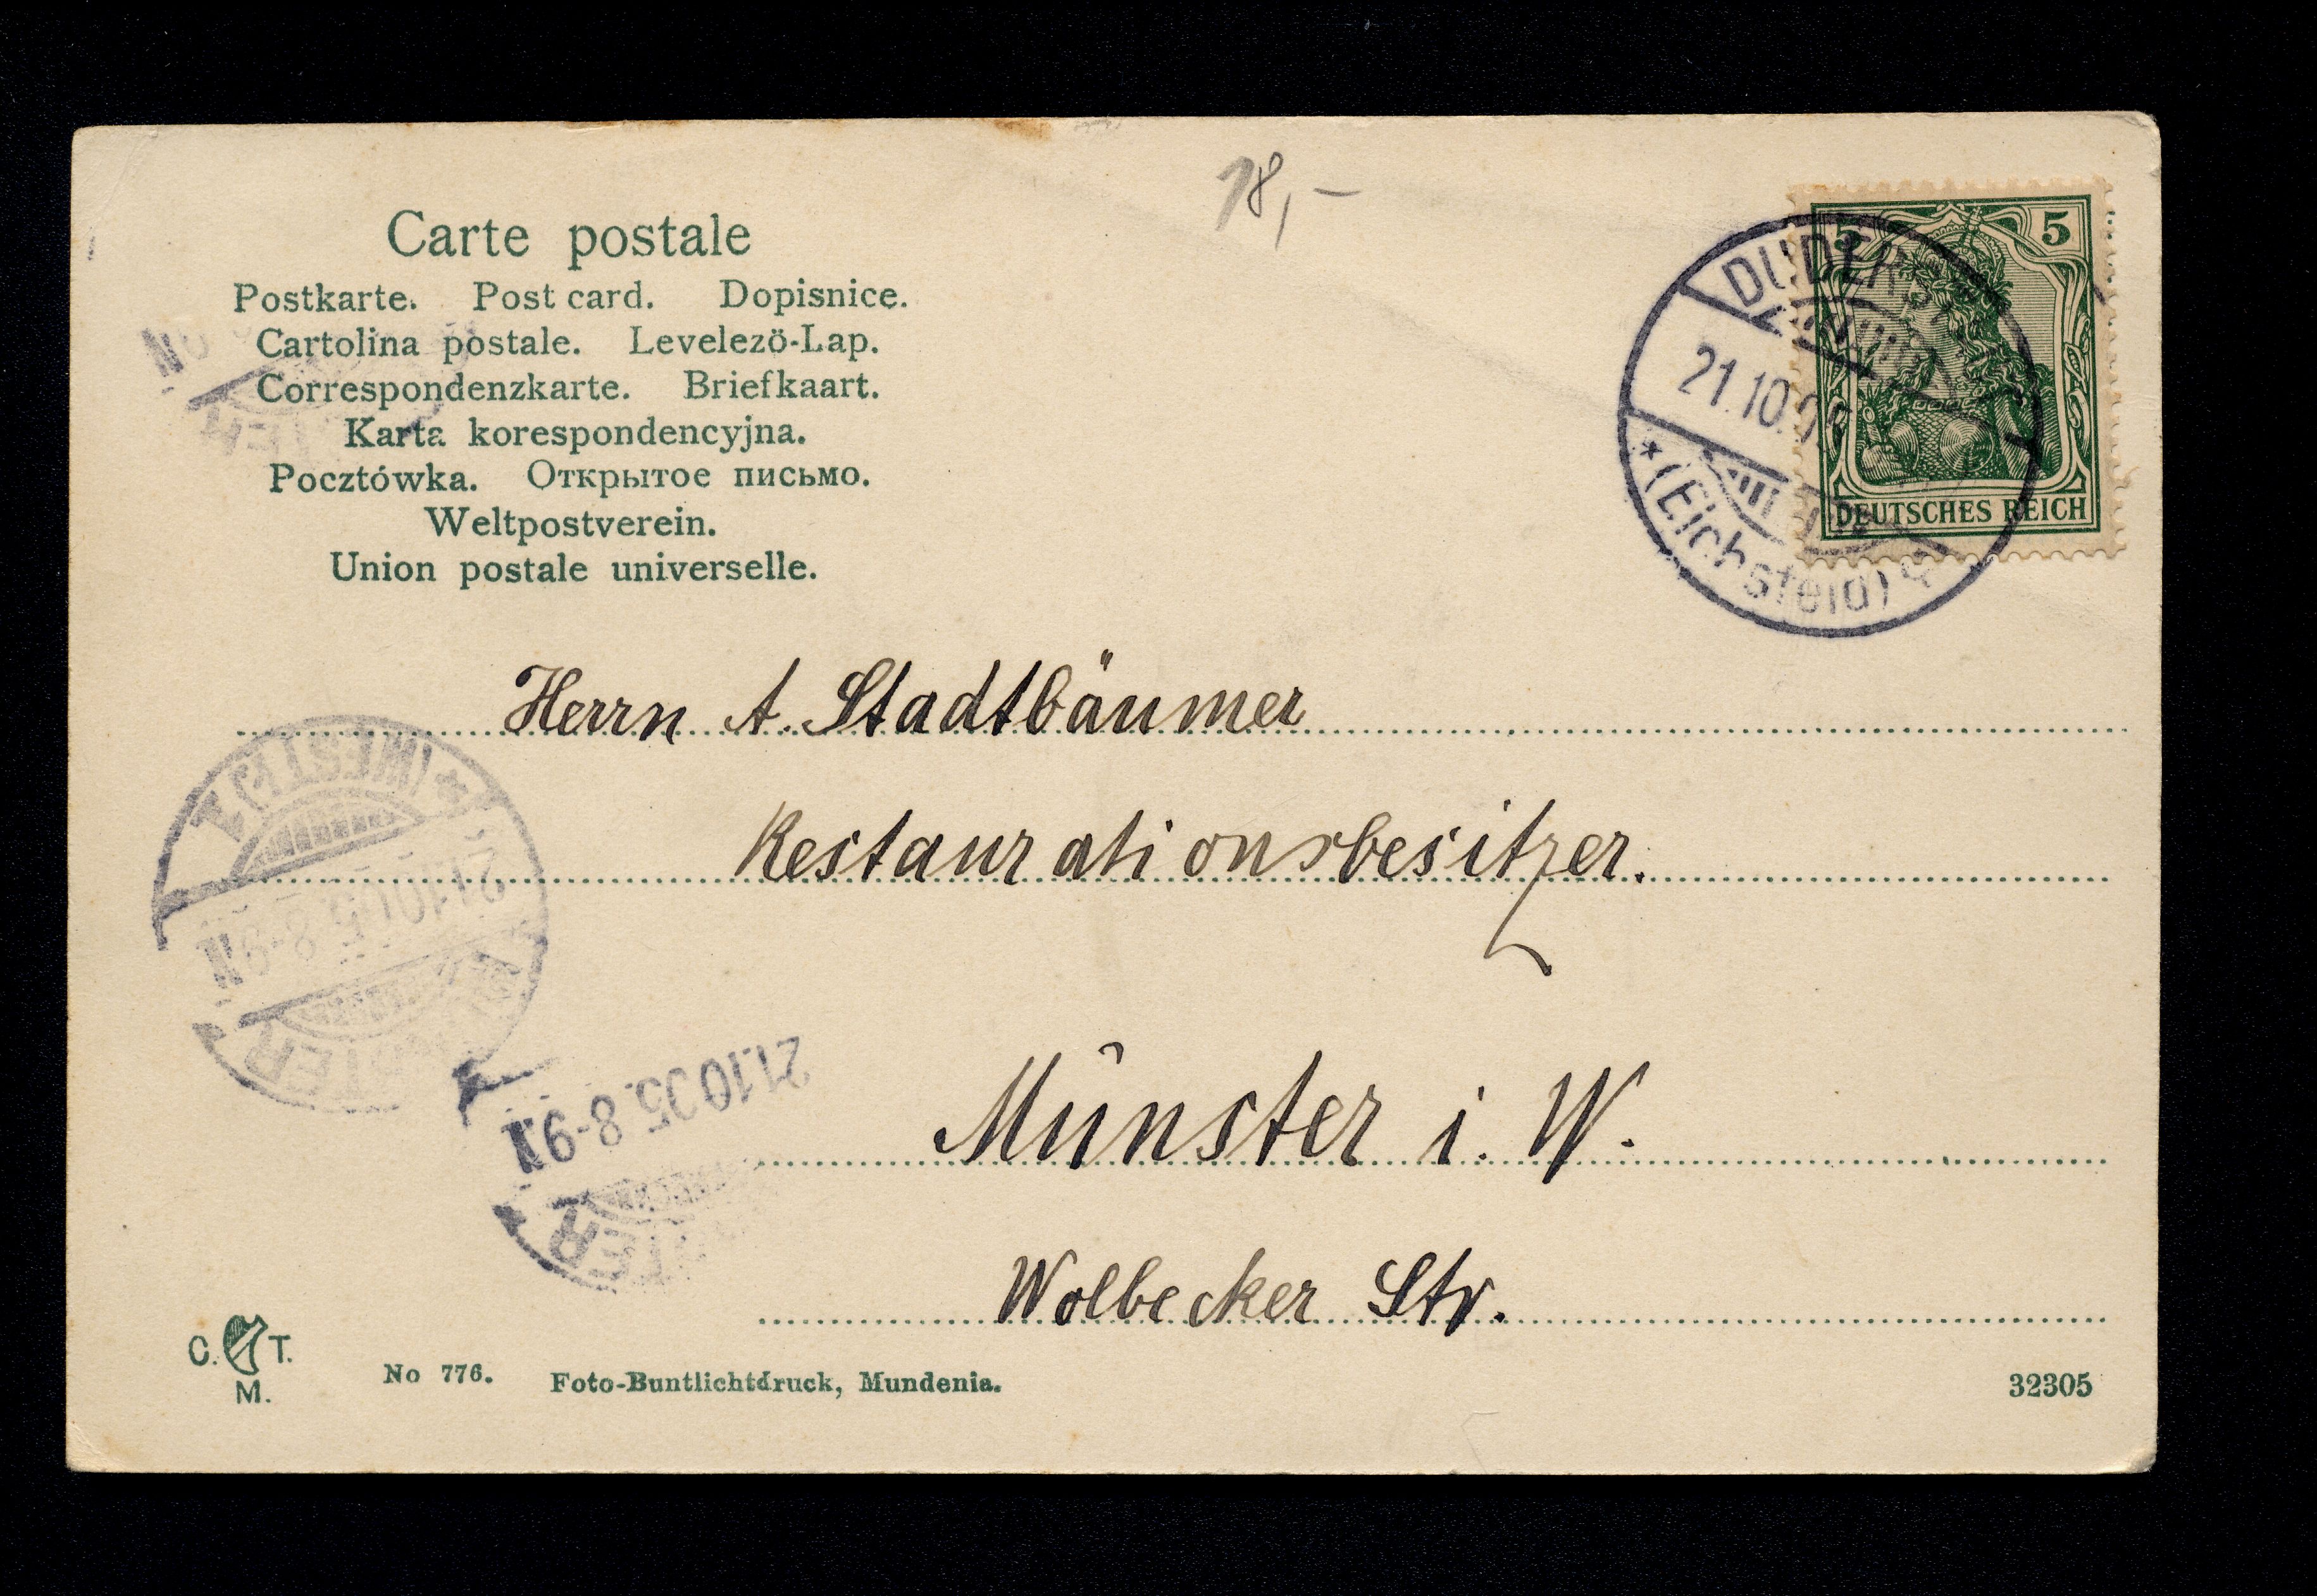 18,-
Carte postale
Postkarte. Post card. Dopisnice.
Cartolina postale. Levelezö-Lap.
Correspondenzkarte. Briefkaart.
Karta korespondencyjna.
Pocztówka. Открытое письмо.
Weltpostverein.
Union postale universelle.
5 5
DEUTSCHES REICH
21.10.
* (Eichsfeld) *
Herrn A. Stadtbäumer
Restaurationsbesitzer.
* (WESTF.) 1
21.10.05. 8-9 N
21.10.05. 8-9 N
Münster i. W.
Wolbecker Str.
C. T.
M.
No 776. Foto-Buntlichtdruck, Mundenia.
32305